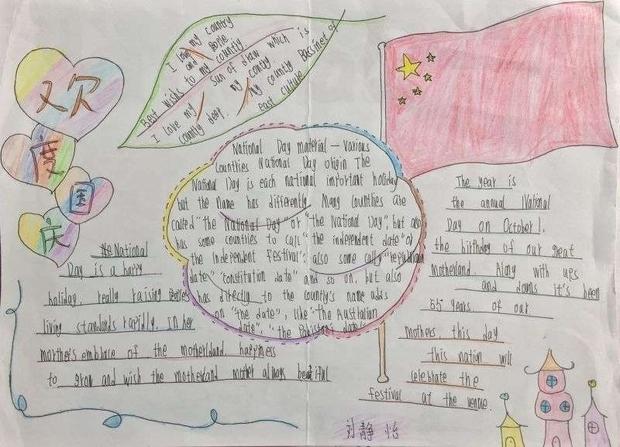 欢
度
国
庆
I love my country
and
to my country
Best wishes
sun of draw which is
I love my
my country
country deep.
my country Bassinet of
east culture
National Day material - Various
Countries National Day origin The
National Day is each national important holiday
but the name has differently. Many countries are
called "the National Day" or "the National Day", but also
has some countries to call "the independent date" or
"the Independent Festival", also some call "republican
date" "constitution date" and so on, but also
has directly to the country's name adds
on "the date", like "the Australian
date", "the Pakistani date"
The year is
the annual National
Day on October 1.
the birthday of our great
motherland. Along with ups
and downs it's been
55 years of our
mothers this day
this nation will
celebrate the
festival at the venue.
National
Day is a happy
holiday, really raising
living standards rapidly. In her
mother's embrace of the motherland happiness
to grow and wish the motherland mother always beautiful
刘静怡